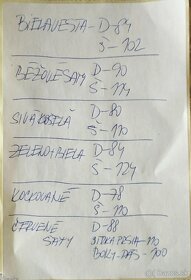 BIELA VESTA - D-84
Š - 102
BÉŽOVÉ SAM D-90
Š-114
SIVÁ KOŠEĽA D-80
Š-110
ZELENO BIELA D-84
Š-124
KOCKOVANÉ D-78
Š-110
ČERVENÉ D-88
ŠATY ŠÍRKA PŔSIA-110
BOKY-PÁS-100